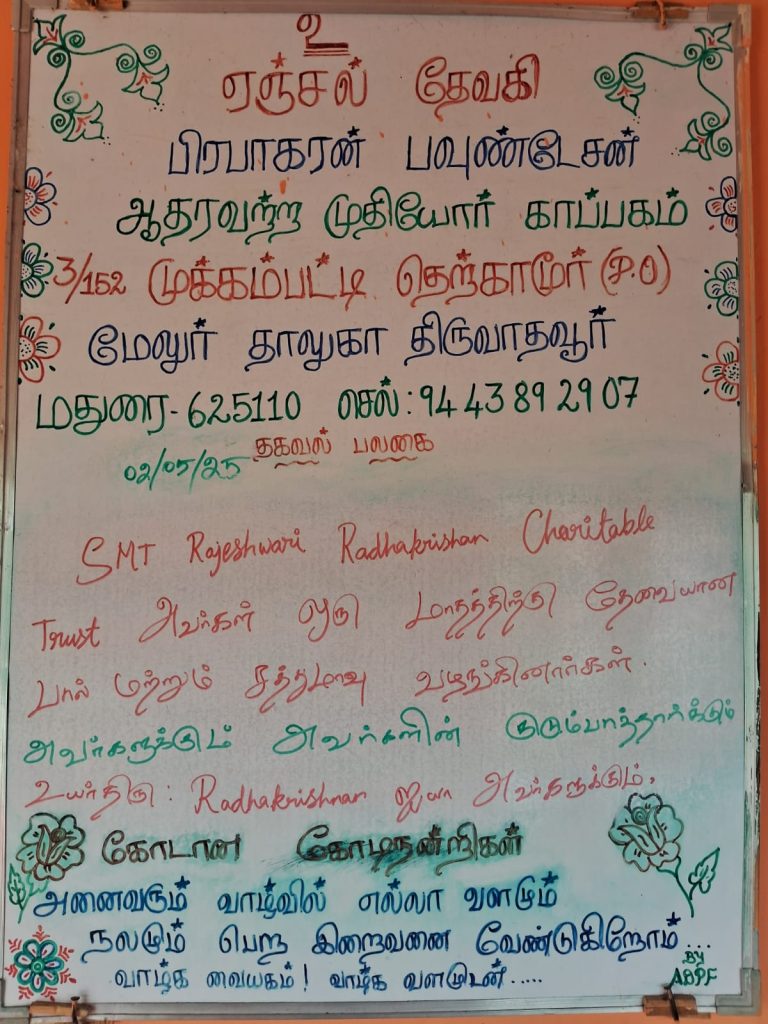 உ
ஏஞ்சல் தேவகி
பிரபாகரன் பவுண்டேசன்
ஆதரவற்ற முதியோர் காப்பகம்
3/152 முக்கம்பட்டி தெற்காமூர் (P.O)
மேலுர் தாலுகா திருவாதவூர்
மதுரை - 625110 செல் : 94 43 89 29 07
தகவல் பலகை
02/05/25
SMT Rajeshwari Radhakrishan Charitable
Trust அவர்கள் ஒரு மாதத்திற்கு தேவையான
பால் மற்றும் சத்துமாவு வழங்கினார்கள்.
அவர்களுக்கும் அவர்களின் குடும்பாத்தார்க்கும்
உயர்திரு : Radhakrishnan ஐயா அவர்களுக்கும்.
கோடான கோடிநன்றிகள்
அனைவரும் வாழ்வில் எல்லா வளமும்
நலமும் பெற இறைவனை வேண்டுகிறோம்...
வாழ்க வையகம் ! வாழ்க வளமுடன் .....
BY
ADPF